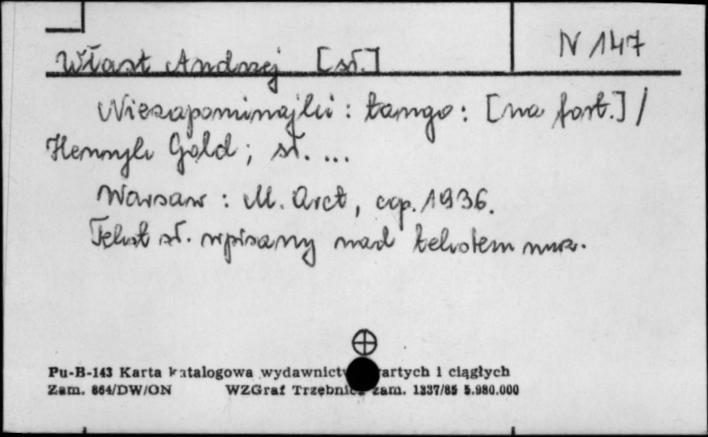 N 147
Włast Andrzej [sł.]
Niezapominajki : tango : [na fort.] /
Henryk Gold ; sł. ...
Warsaw : M. Arct, cop. 1936.
Tekst sł. wpisany nad tekstem muz.
Pu-B-143 Karta katalogowa wydawnictw zwartych i ciągłych
Zam. 864/DW/ON WZGraf Trzebnica zam. 1337/85 5.980.000